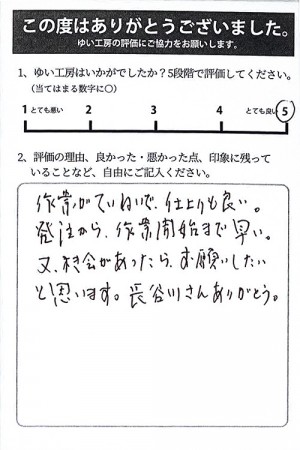 この度はありがとうございました。
ゆい工房の評価にご協力をお願いします。
1、ゆい工房はいかがでしたか？5段階で評価してください。
(当てはまる数字に○)
1 とても悪い 2 3 4 とても良い 5
2、評価の理由、良かった・悪かった点、印象に残って
いることなど、自由にご記入ください。
作業がていねいで、仕上りも良い。
発注から、作業開始まで早い。
又、機会があったら、お願いしたい
と思います。長谷川さんありがとう。